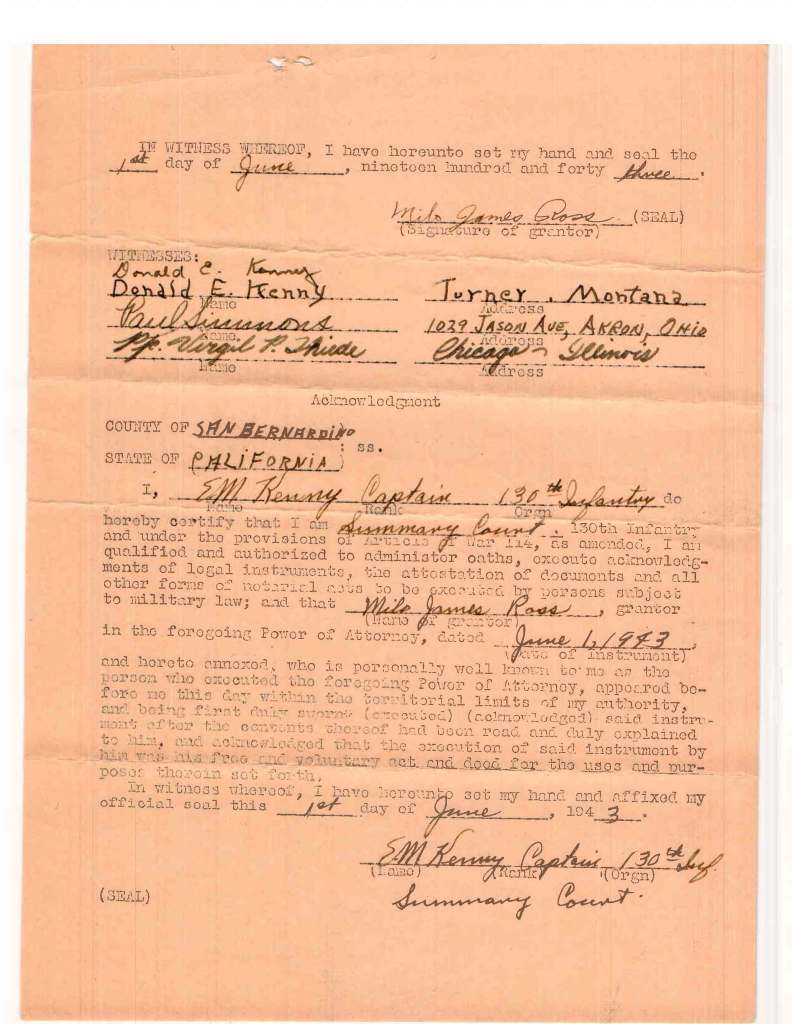 IN WITNESS WHEREOF, I have hereunto set my hand and seal the
1st day of June, nineteen hundred and forty three.
Milo James Ross (SEAL)
(Signature of grantor)
WITNESSES:
Donald E. Kenney
Donald E. Kenny Turner, Montana
Name Address
Paul Simmons 1029 JASON AVE, AKRON, OHIO
Name Address
Virgil P. Thiede Chicago - Illinois
Name Address
Acknowledgment
COUNTY OF SAN BERNARDINO
: ss.
STATE OF CALIFORNIA
I, EM Kenny Captain 130th Infantry do
Name Rank Orgn
hereby certify that I am Summary Court, 130th Infantry
and under the provisions of Article of War 114, as amended, I am
qualified and authorized to administer oaths, execute acknowledg-
ments of legal instruments, the attestation of documents and all
other forms of notarial acts to be executed by persons subject
to military law; and that Milo James Ross, grantor
(Name of grantor)
in the foregoing Power of Attorney, dated June 1, 1943,
(Date of Instrument)
and hereto annexed, who is personally well known to me as the
person who executed the foregoing Power of Attorney, appeared be-
fore me this day within the territorial limits of my authority,
and being first duly sworn (executed) (acknowledged) said instru-
ment after the contents thereof had been read and duly explained
to him, and acknowledged that the execution of said instrument by
him was his free and voluntary act and deed for the uses and pur-
poses therein set forth.
In witness whereof, I have hereunto set my hand and affixed my
official seal this 1st day of June, 1943.
EM Kenny Captain 130th Inf.
(Name) (Rank) (Orgn)
(SEAL) Summary Court.